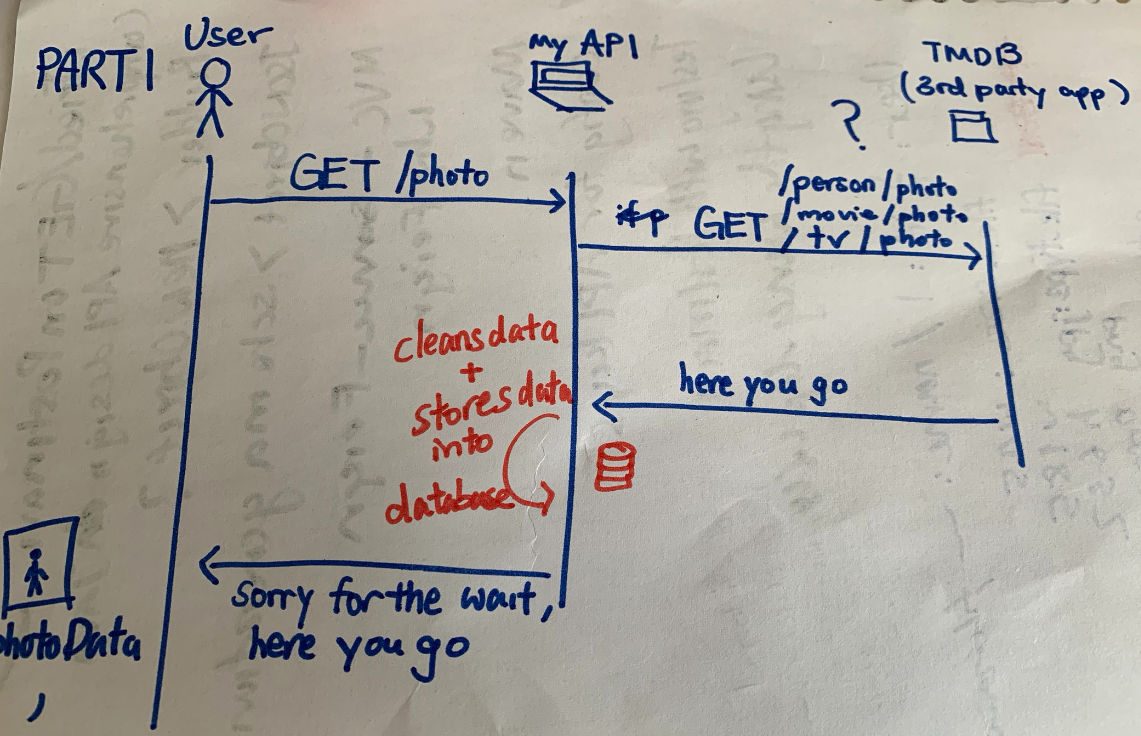 PART 1
User
My API
TMDB
(3rd party app)
?
GET /photo
GET
/person/photo
/movie/photo
/tv/photo
cleans data
+
stores data
into
database
here you go
Sorry for the wait,
here you go
photoData